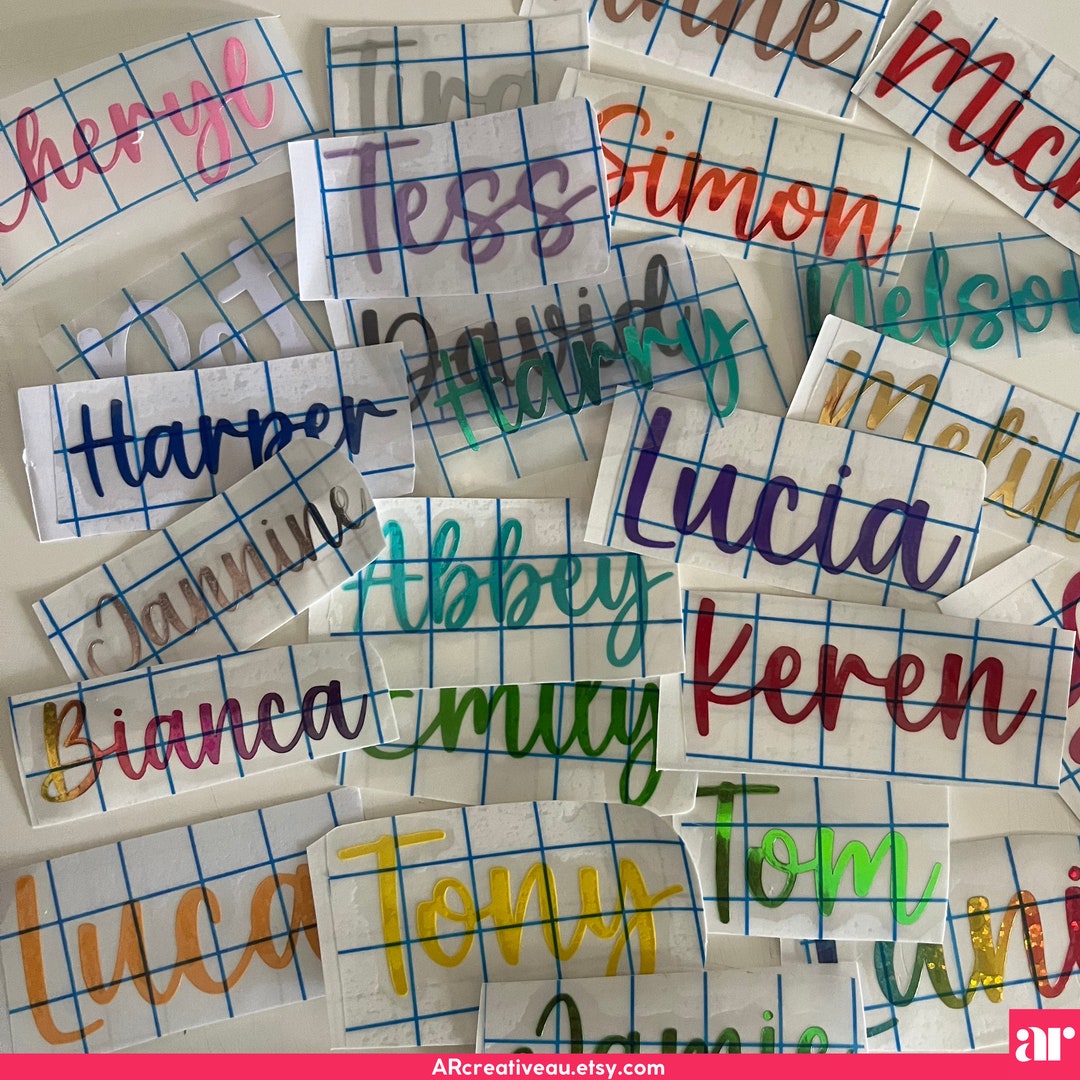 Cheryl
Tess
Simon
Nelson
Pat
David
Harry
Harper
Lucia
Jannine
Abbey
Keren
Bianca
Emily
Tom
Luca
Tony
Jamie
ar
ARcreativeau.etsy.com